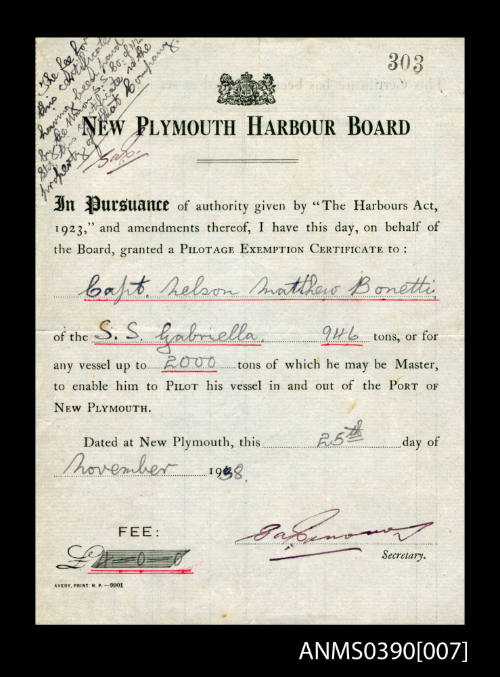 303
The fee for
this certificate
having been paid
by the U.S.S. Co. of N.Z.
this certificate is the
property of that Company.
NEW PLYMOUTH HARBOUR BOARD
In Pursuance of authority given by "The Harbours Act,
1923," and amendments thereof, I have this day, on behalf of
the Board, granted a PILOTAGE EXEMPTION CERTIFICATE to :
Capt. Nelson Matthew Bonetti
of the S.S. Gabriella. 946 tons, or for
any vessel up to 2000 tons of which he may be Master,
to enable him to PILOT his vessel in and out of the PORT OF
NEW PLYMOUTH.
Dated at New Plymouth, this 25th day of
November 1938.
FEE:
£4-0-0
Secretary.
AVERY, PRINT. N. P.—9901
ANMS0390[007]